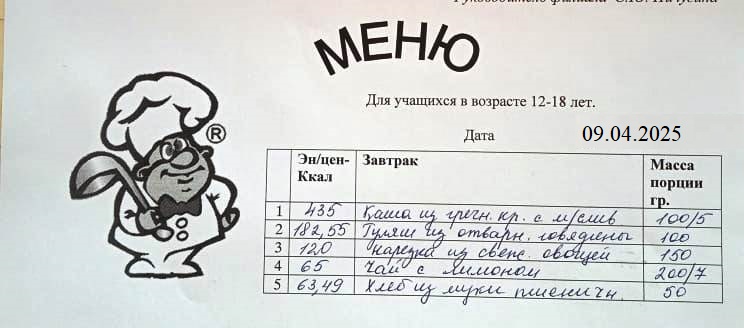 МЕНЮ
Для учащихся в возрасте 12-18 лет.
Дата 09.04.2025
Эн/цен-Ккал Завтрак Масса порции гр.
1 435 Каша из гречн. кр. с м/слив 100/5
2 182,55 Гуляш из отварн. говядины 100
3 120 нарезка из свеж. овощей 150
4 65 Чай с лимоном 200/7
5 63,49 Хлеб из муки пшеничн. 50
®